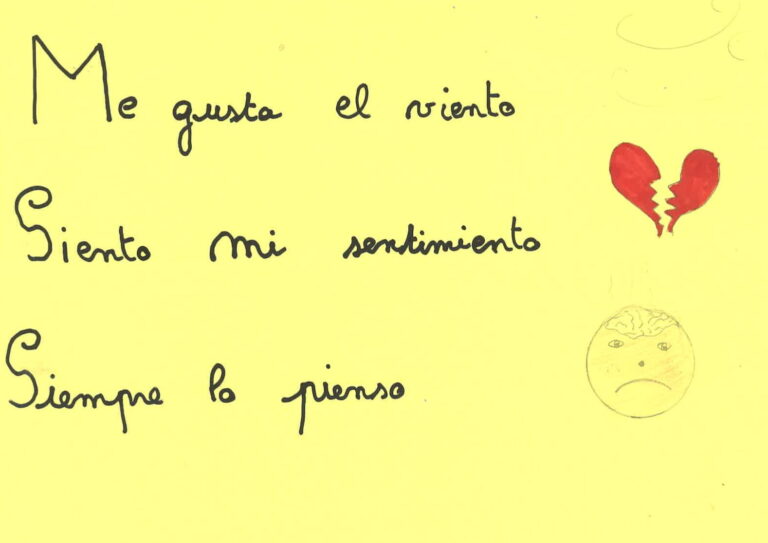 Me gusta el viento
Siento mi sentimiento
Siempre lo pienso